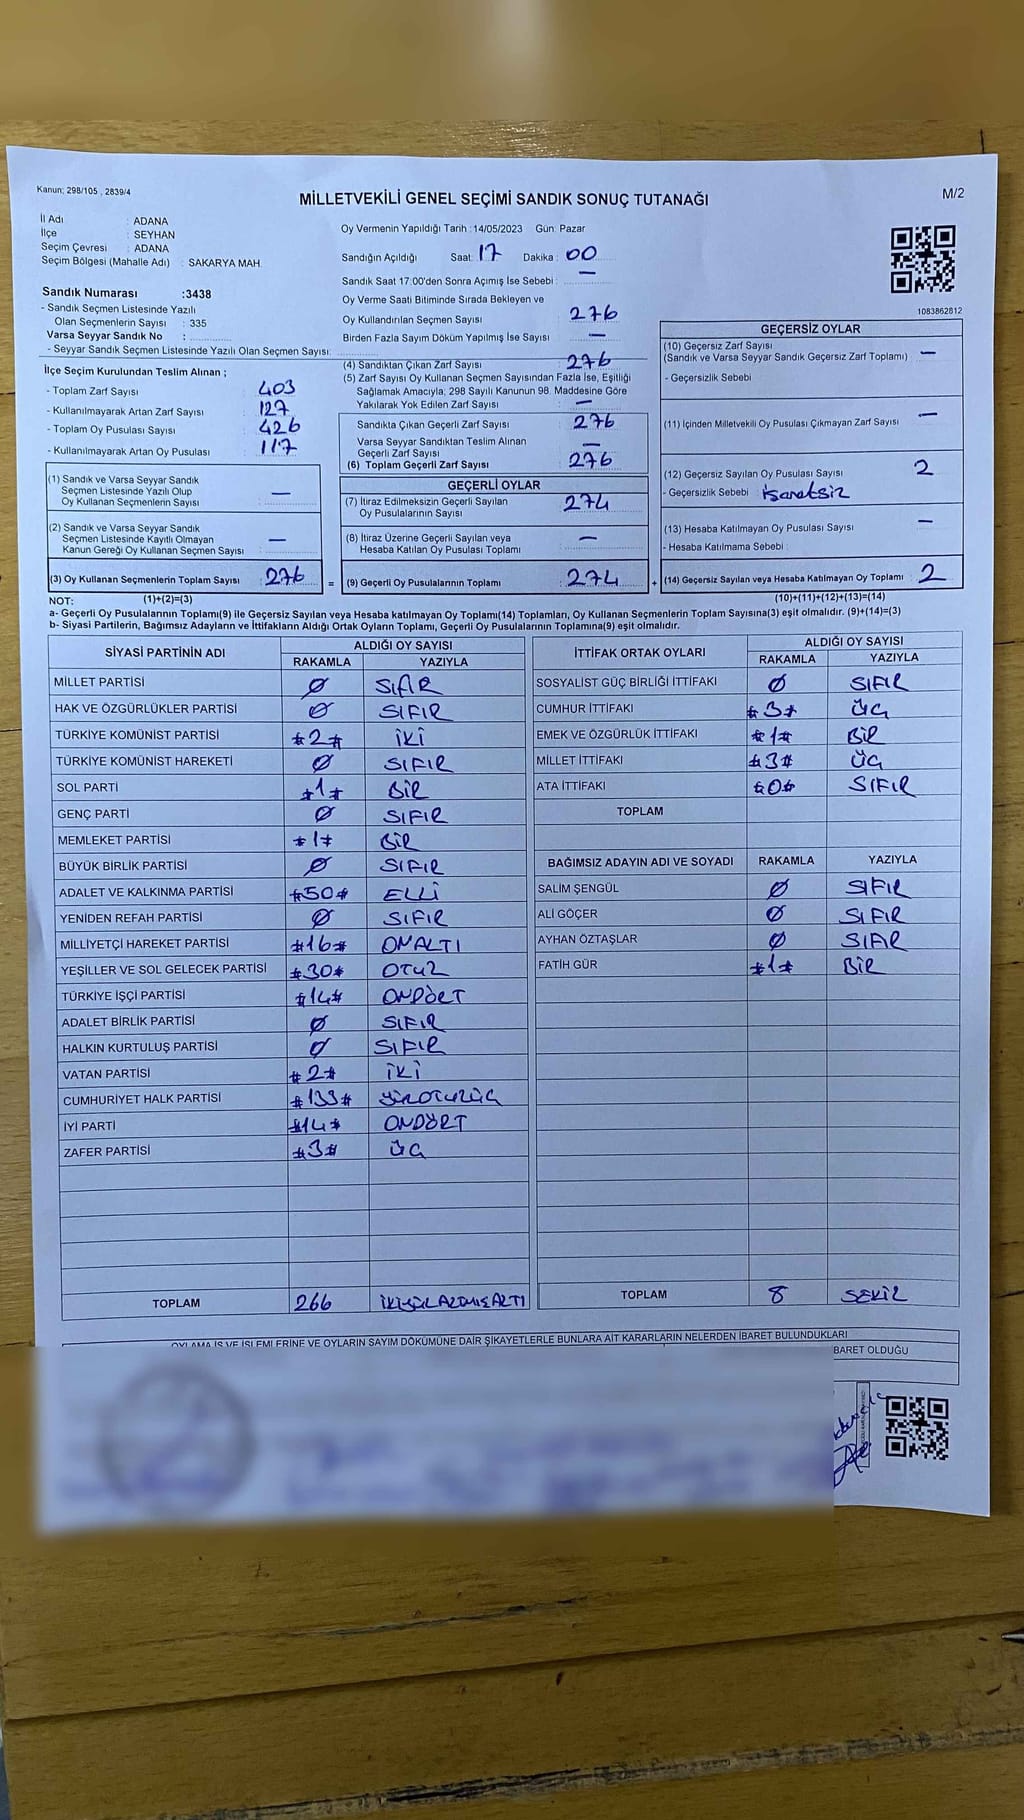 Kanun; 298/105 , 2839/4
MİLLETVEKİLİ GENEL SEÇİMİ SANDIK SONUÇ TUTANAĞI
M/2
İl Adı : ADANA
İlçe : SEYHAN
Seçim Çevresi : ADANA
Seçim Bölgesi (Mahalle Adı) : SAKARYA MAH.
Sandık Numarası :3438
- Sandık Seçmen Listesinde Yazılı
Olan Seçmenlerin Sayısı : 335
Varsa Seyyar Sandık No :
- Seyyar Sandık Seçmen Listesinde Yazılı Olan Seçmen Sayısı:
İlçe Seçim Kurulundan Teslim Alınan ;
- Toplam Zarf Sayısı 403
- Kullanılmayarak Artan Zarf Sayısı 127
- Toplam Oy Pusulası Sayısı 426
- Kullanılmayarak Artan Oy Pusulası 117
(1) Sandık ve Varsa Seyyar Sandık
Seçmen Listesinde Yazılı Olup
Oy Kullanan Seçmenlerin Sayısı : —
(2) Sandık ve Varsa Seyyar Sandık
Seçmen Listesinde Kayıtlı Olmayan
Kanun Gereği Oy Kullanan Seçmen Sayısı : —
(3) Oy Kullanan Seçmenlerin Toplam Sayısı : 276
Oy Vermenin Yapıldığı Tarih : 14/05/2023 Gün: Pazar
Sandığın Açıldığı Saat: 17 Dakika : 00
Sandık Saat 17:00'den Sonra Açımış İse Sebebi : —
Oy Verme Saati Bitiminde Sırada Bekleyen ve
Oy Kullandırılan Seçmen Sayısı 276
Birden Fazla Sayım Döküm Yapılmış İse Sayısı —
(4) Sandıktan Çıkan Zarf Sayısı 276
(5) Zarf Sayısı Oy Kullanan Seçmen Sayısından Fazla İse, Eşitliği
Sağlamak Amacıyla; 298 Sayılı Kanunun 98. Maddesine Göre
Yakılarak Yok Edilen Zarf Sayısı —
Sandıkta Çıkan Geçerli Zarf Sayısı 276
Varsa Seyyar Sandıktan Teslim Alınan
Geçerli Zarf Sayısı —
(6) Toplam Geçerli Zarf Sayısı 276
GEÇERLİ OYLAR
(7) İtiraz Edilmeksizin Geçerli Sayılan
Oy Pusulalarının Sayısı 274
(8) İtiraz Üzerine Geçerli Sayılan veya
Hesaba Katılan Oy Pusulası Toplamı —
= (9) Geçerli Oy Pusulalarının Toplamı 274
1083862812
GEÇERSİZ OYLAR
(10) Geçersiz Zarf Sayısı
(Sandık ve Varsa Seyyar Sandık Geçersiz Zarf Toplamı) —
- Geçersizlik Sebebi
(11) İçinden Milletvekili Oy Pusulası Çıkmayan Zarf Sayısı —
(12) Geçersiz Sayılan Oy Pusulası Sayısı 2
- Geçersizlik Sebebi : işaretsiz
(13) Hesaba Katılmayan Oy Pusulası Sayısı —
- Hesaba Katılmama Sebebi :
+ (14) Geçersiz Sayılan veya Hesaba Katılmayan Oy Toplamı 2
NOT: (1)+(2)=(3)
(10)+(11)+(12)+(13)=(14)
a- Geçerli Oy Pusulalarının Toplamı(9) ile Geçersiz Sayılan veya Hesaba katılmayan Oy Toplamı(14) Toplamları, Oy Kullanan Seçmenlerin Toplam Sayısına(3) eşit olmalıdır. (9)+(14)=(3)
b- Siyasi Partilerin, Bağımsız Adayların ve İttifakların Aldığı Ortak Oyların Toplamı, Geçerli Oy Pusulalarının Toplamına(9) eşit olmalıdır.
SİYASİ PARTİNİN ADI
ALDIĞI OY SAYISI
RAKAMLA YAZIYLA
MİLLET PARTİSİ 0 SIFIR
HAK VE ÖZGÜRLÜKLER PARTİSİ 0 SIFIR
TÜRKİYE KOMÜNİST PARTİSİ #2# İKİ
TÜRKİYE KOMÜNİST HAREKETİ 0 SIFIR
SOL PARTİ #1# BİR
GENÇ PARTİ 0 SIFIR
MEMLEKET PARTİSİ #1# BİR
BÜYÜK BİRLİK PARTİSİ 0 SIFIR
ADALET VE KALKINMA PARTİSİ #50# ELLİ
YENİDEN REFAH PARTİSİ 0 SIFIR
MİLLİYETÇİ HAREKET PARTİSİ #16# ONALTI
YEŞİLLER VE SOL GELECEK PARTİSİ #30# OTUZ
TÜRKİYE İŞÇİ PARTİSİ #14# ONDÖRT
ADALET BİRLİK PARTİSİ 0 SIFIR
HALKIN KURTULUŞ PARTİSİ 0 SIFIR
VATAN PARTİSİ #2# İKİ
CUMHURİYET HALK PARTİSİ #133# YÜZOTUZÜÇ
İYİ PARTİ #14# ONDÖRT
ZAFER PARTİSİ #3# ÜÇ
TOPLAM 266 İKİYÜZALTMIŞALTI
İTTİFAK ORTAK OYLARI
ALDIĞI OY SAYISI
RAKAMLA YAZIYLA
SOSYALİST GÜÇ BİRLİĞİ İTTİFAKI 0 SIFIR
CUMHUR İTTİFAKI #3# ÜÇ
EMEK VE ÖZGÜRLÜK İTTİFAKI #1# BİR
MİLLET İTTİFAKI #3# ÜÇ
ATA İTTİFAKI #0# SIFIR
TOPLAM
BAĞIMSIZ ADAYIN ADI VE SOYADI RAKAMLA YAZIYLA
SALİM ŞENGÜL 0 SIFIR
ALİ GÖÇER 0 SIFIR
AYHAN ÖZTAŞLAR 0 SIFIR
FATİH GÜR #1# BİR
TOPLAM 8 SEKİZ
OYLAMA İŞ VE İŞLEMLERİNE VE OYLARIN SAYIM DÖKÜMÜNE DAİR ŞİKAYETLERLE BUNLARA AİT KARARLARIN NELERDEN İBARET BULUNDUKLARI
BARET OLDUĞU